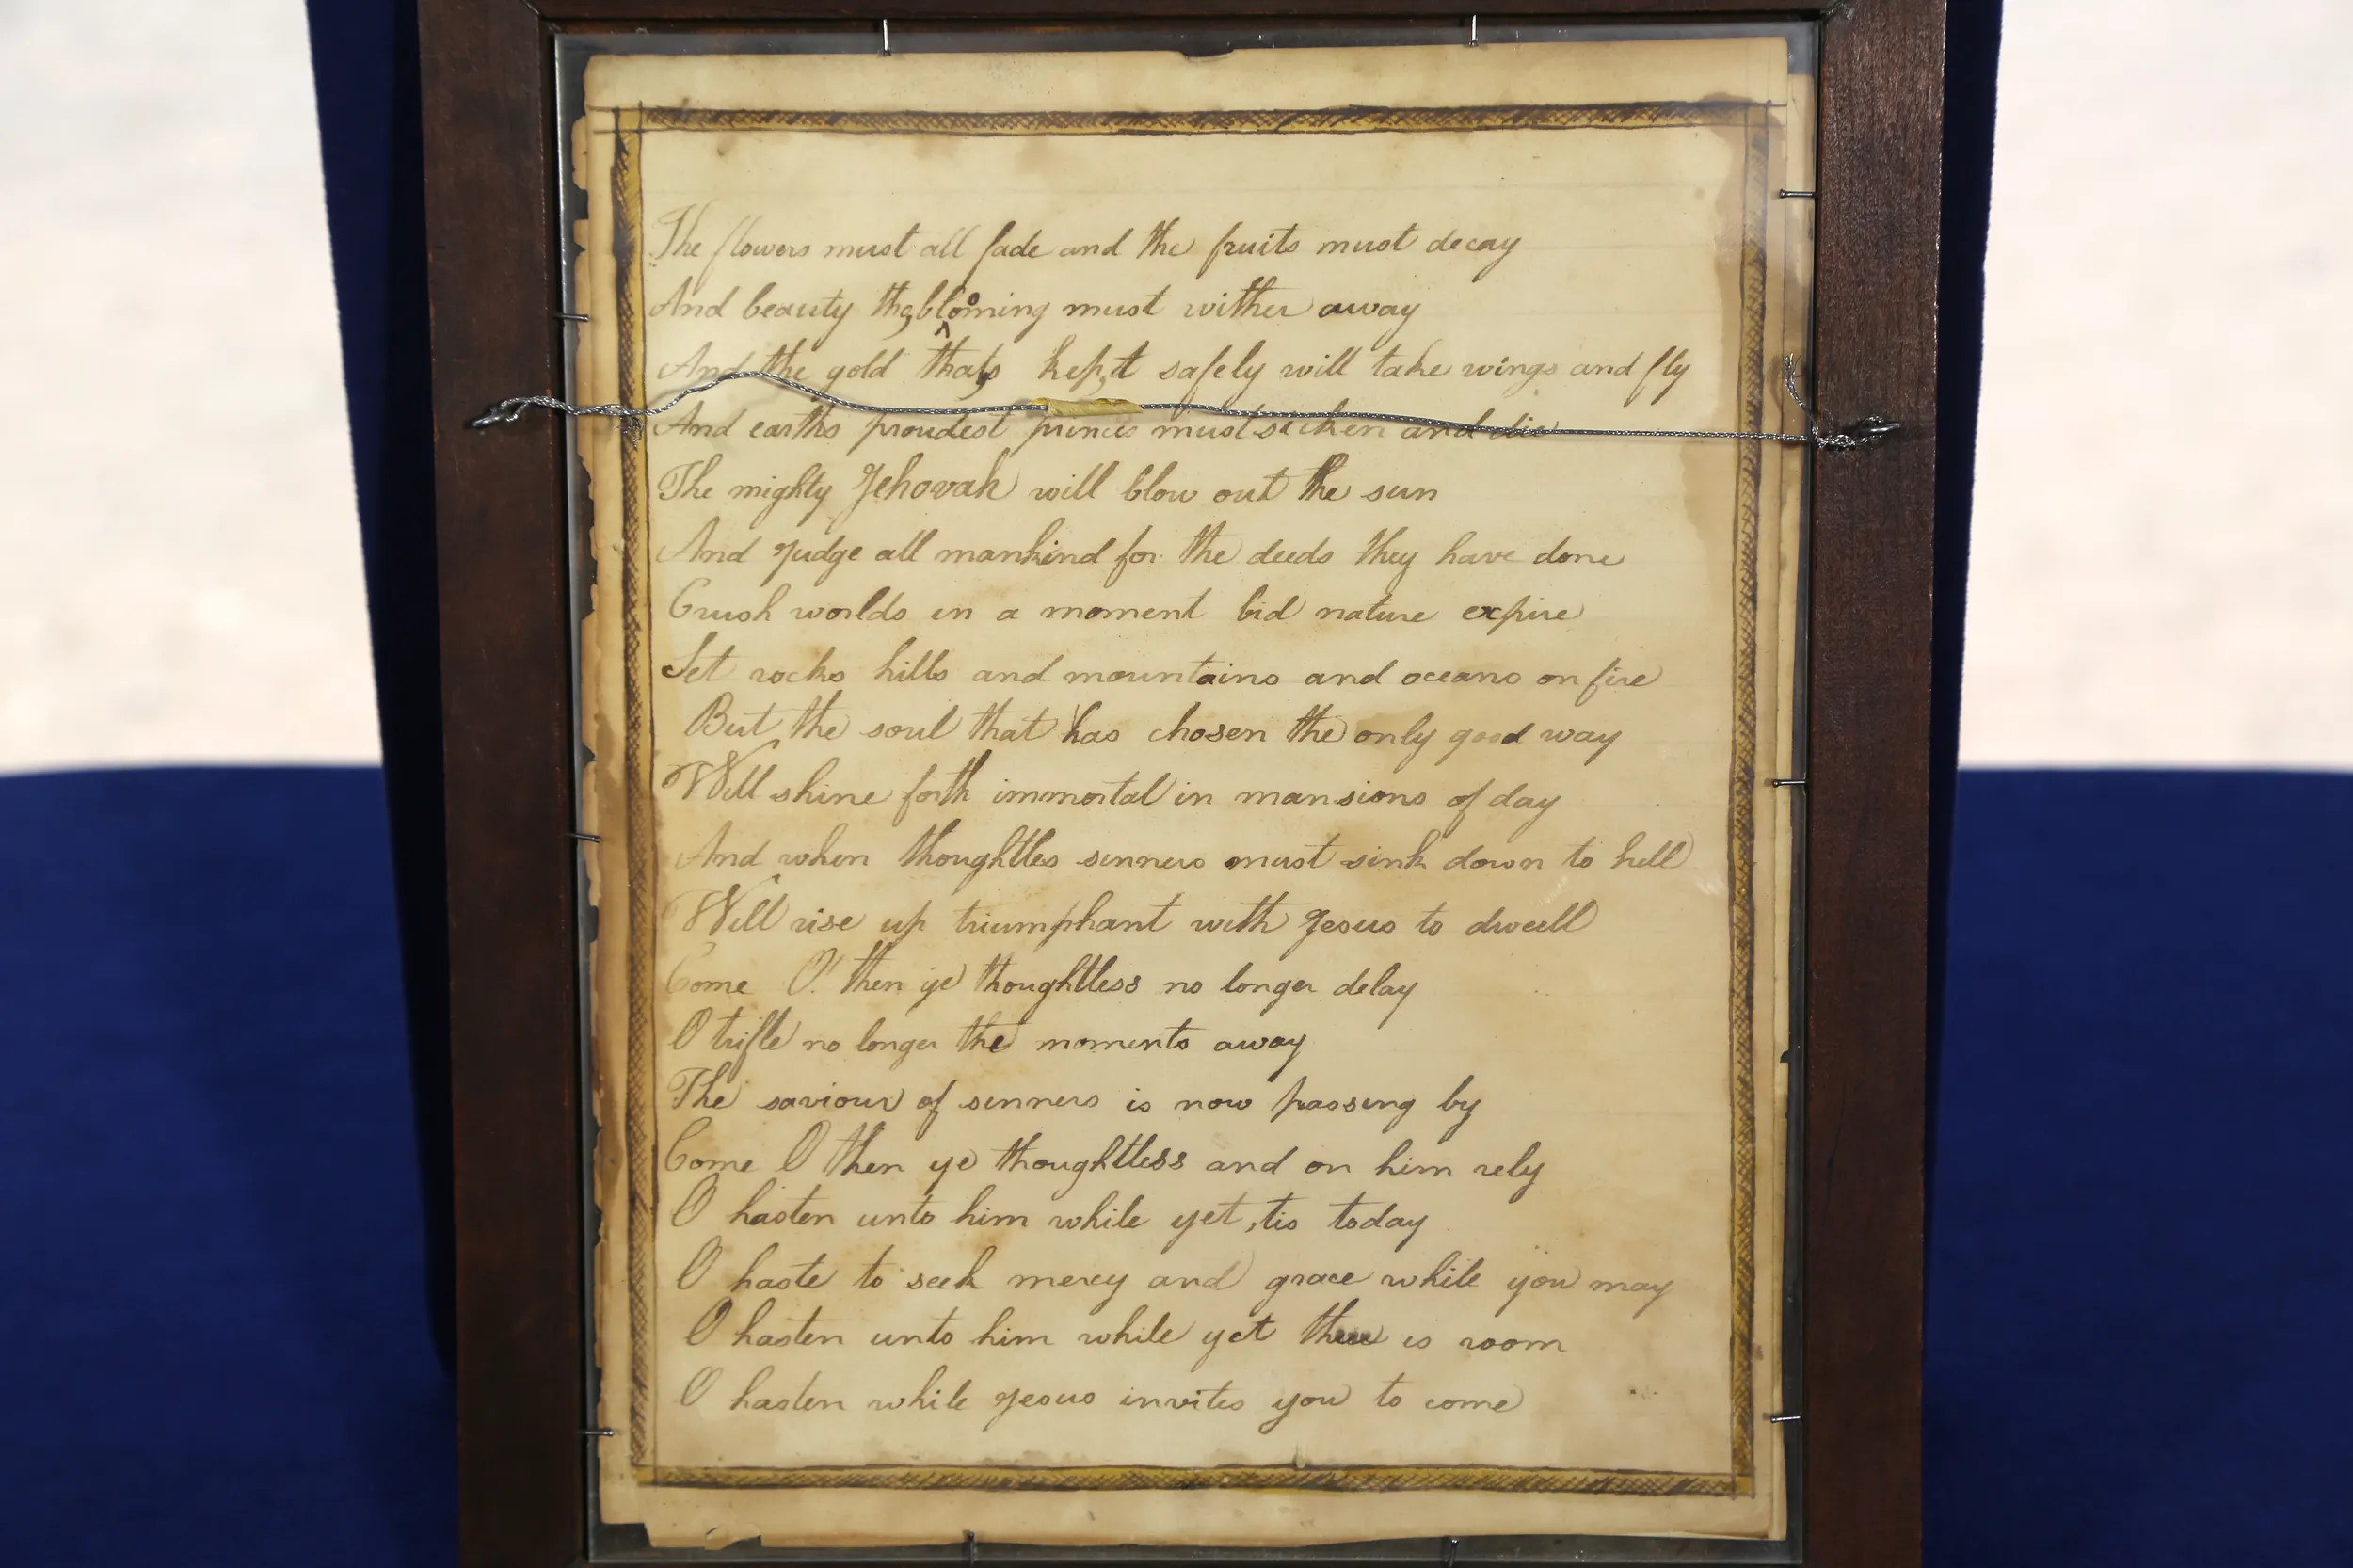 The flowers must all fade and the fruits must decay
And beauty tho, blooming must wither away
And the gold that,s kep,t safely will take wings and fly
And earths proudest princes must sicken and die
The mighty Jehovah will blow out the sun
And judge all mankind for the deeds they have done
Crush worlds in a moment bid nature expire
Set rocks hills and mountains and oceans on fire
But the soul that has chosen the only good way
Will shine forth immortal in mansions of day
And when thoughtles sinners must sink down to hell
Will rise up triumphant with Jesus to dwell
Come O! then ye thoughtless no longer delay
O trifle no longer the moments away
The saviour of sinners is now passing by
Come O then ye thoughtless and on him rely
O hasten unto him while yet ,tis today
O haste to seek mercy and grace while you may
O hasten unto him while yet there is room
O hasten while Jesus invites you to come